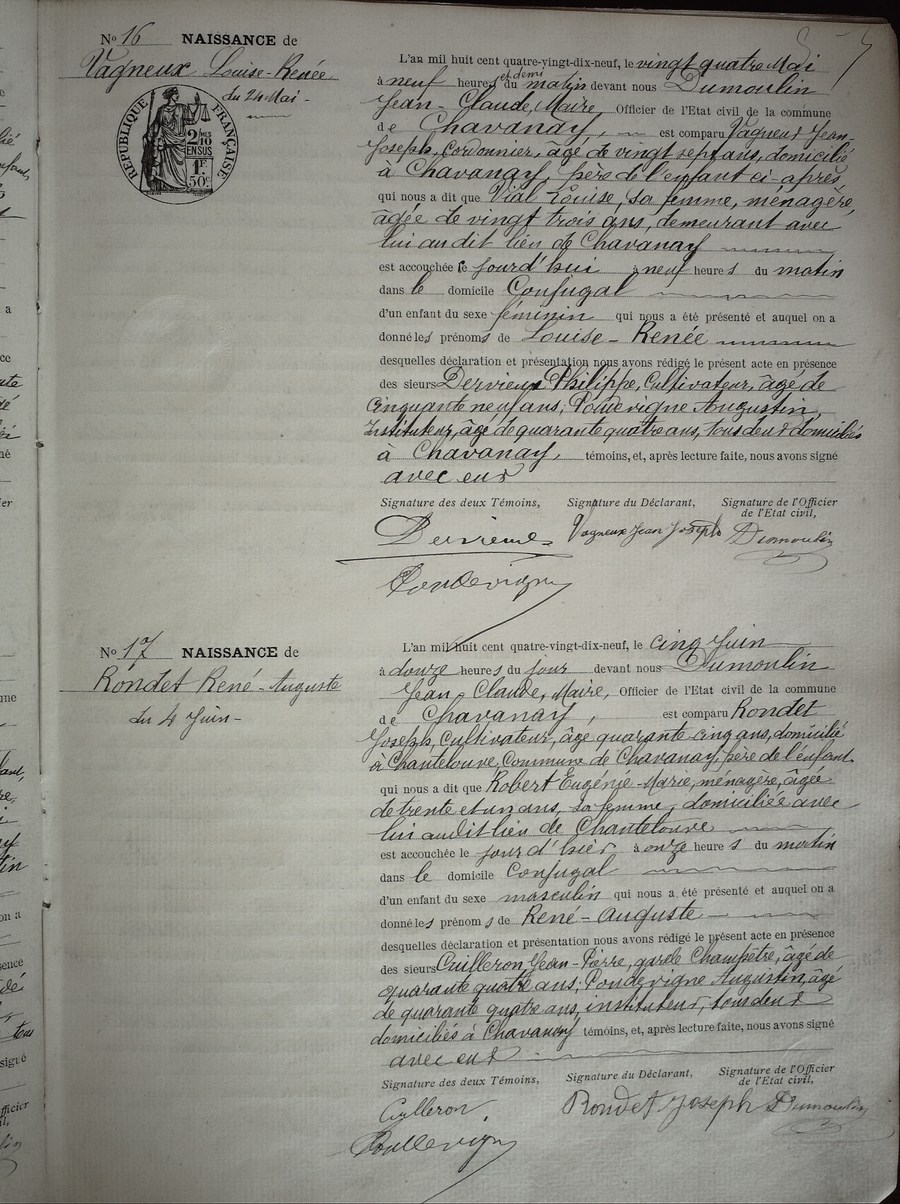 N° 16 NAISSANCE de
Vagneux Louise-Renée
du 24 Mai -
RÉPUBLIQUE FRANÇAISE
2/10 EN SUS
1F.
50c
L'an mil huit cent quatre-vingt-dix-neuf, le vingt quatre Mai
à neuf heures et demi du matin devant nous Dumoulin
Jean-Claude, Maire, Officier de l'Etat civil de la commune
de Chavanay, est comparu Vagneux Jean-
Joseph, Cordonnier, âgé de vingt sept ans, domicilié
à Chavanay, père de l'enfant ci-après
qui nous a dit que Vial Louise, sa femme, ménagère,
âgée de vingt trois ans, demeurant avec
lui au dit lieu de Chavanay
est accouchée le jourd'hui à neuf heures du matin
dans le domicile Conjugal
d'un enfant du sexe féminin qui nous a été présenté et auquel on a
donné les prénoms de Louise-Renée
desquelles déclaration et présentation nous avons rédigé le présent acte en présence
des sieurs Dervieux Philippe, Cultivateur, âgé de
Cinquante neuf ans, Poudevigne Augustin,
Instituteur, âgé de quarante quatre ans, tous deux domiciliés
à Chavanay, témoins, et, après lecture faite, nous avons signé
avec eux
Signature des deux Témoins, Signature du Déclarant, Signature de l'Officier
de l'Etat civil,
Dervieux Vagneux Jean Joseph Dumoulin
Poudevigne
N° 17 NAISSANCE de
Rondet René-Auguste
du 4 Juin -
L'an mil huit cent quatre-vingt-dix-neuf, le cinq Juin
à douze heures du jour devant nous Dumoulin
Jean-Claude, Maire, Officier de l'Etat civil de la commune
de Chavanay, est comparu Rondet
Joseph, Cultivateur, âgé quarante cinq ans, domicilié
à Chantelouve, Commune de Chavanay, père de l'enfant
qui nous a dit que Robert Eugénie-Marie, ménagère, âgée
de trente et un ans, sa femme, domiciliée avec
lui audit lieu de Chantelouve
est accouchée le jour d'hier à onze heures du matin
dans le domicile Conjugal
d'un enfant du sexe masculin qui nous a été présenté et auquel on a
donné les prénoms de René-Auguste
desquelles déclaration et présentation nous avons rédigé le présent acte en présence
des sieurs Cuilleron Jean-Pierre, garde Champêtre, âgé de
quarante quatre ans, Poudevigne Augustin, âgé
de quarante quatre ans, instituteur, tous deux
domiciliés à Chavanay témoins, et, après lecture faite, nous avons signé
avec eux
Signature des deux Témoins, Signature du Déclarant, Signature de l'Officier
de l'Etat civil,
Cuilleron Rondet Joseph Dumoulin
Poudevigne